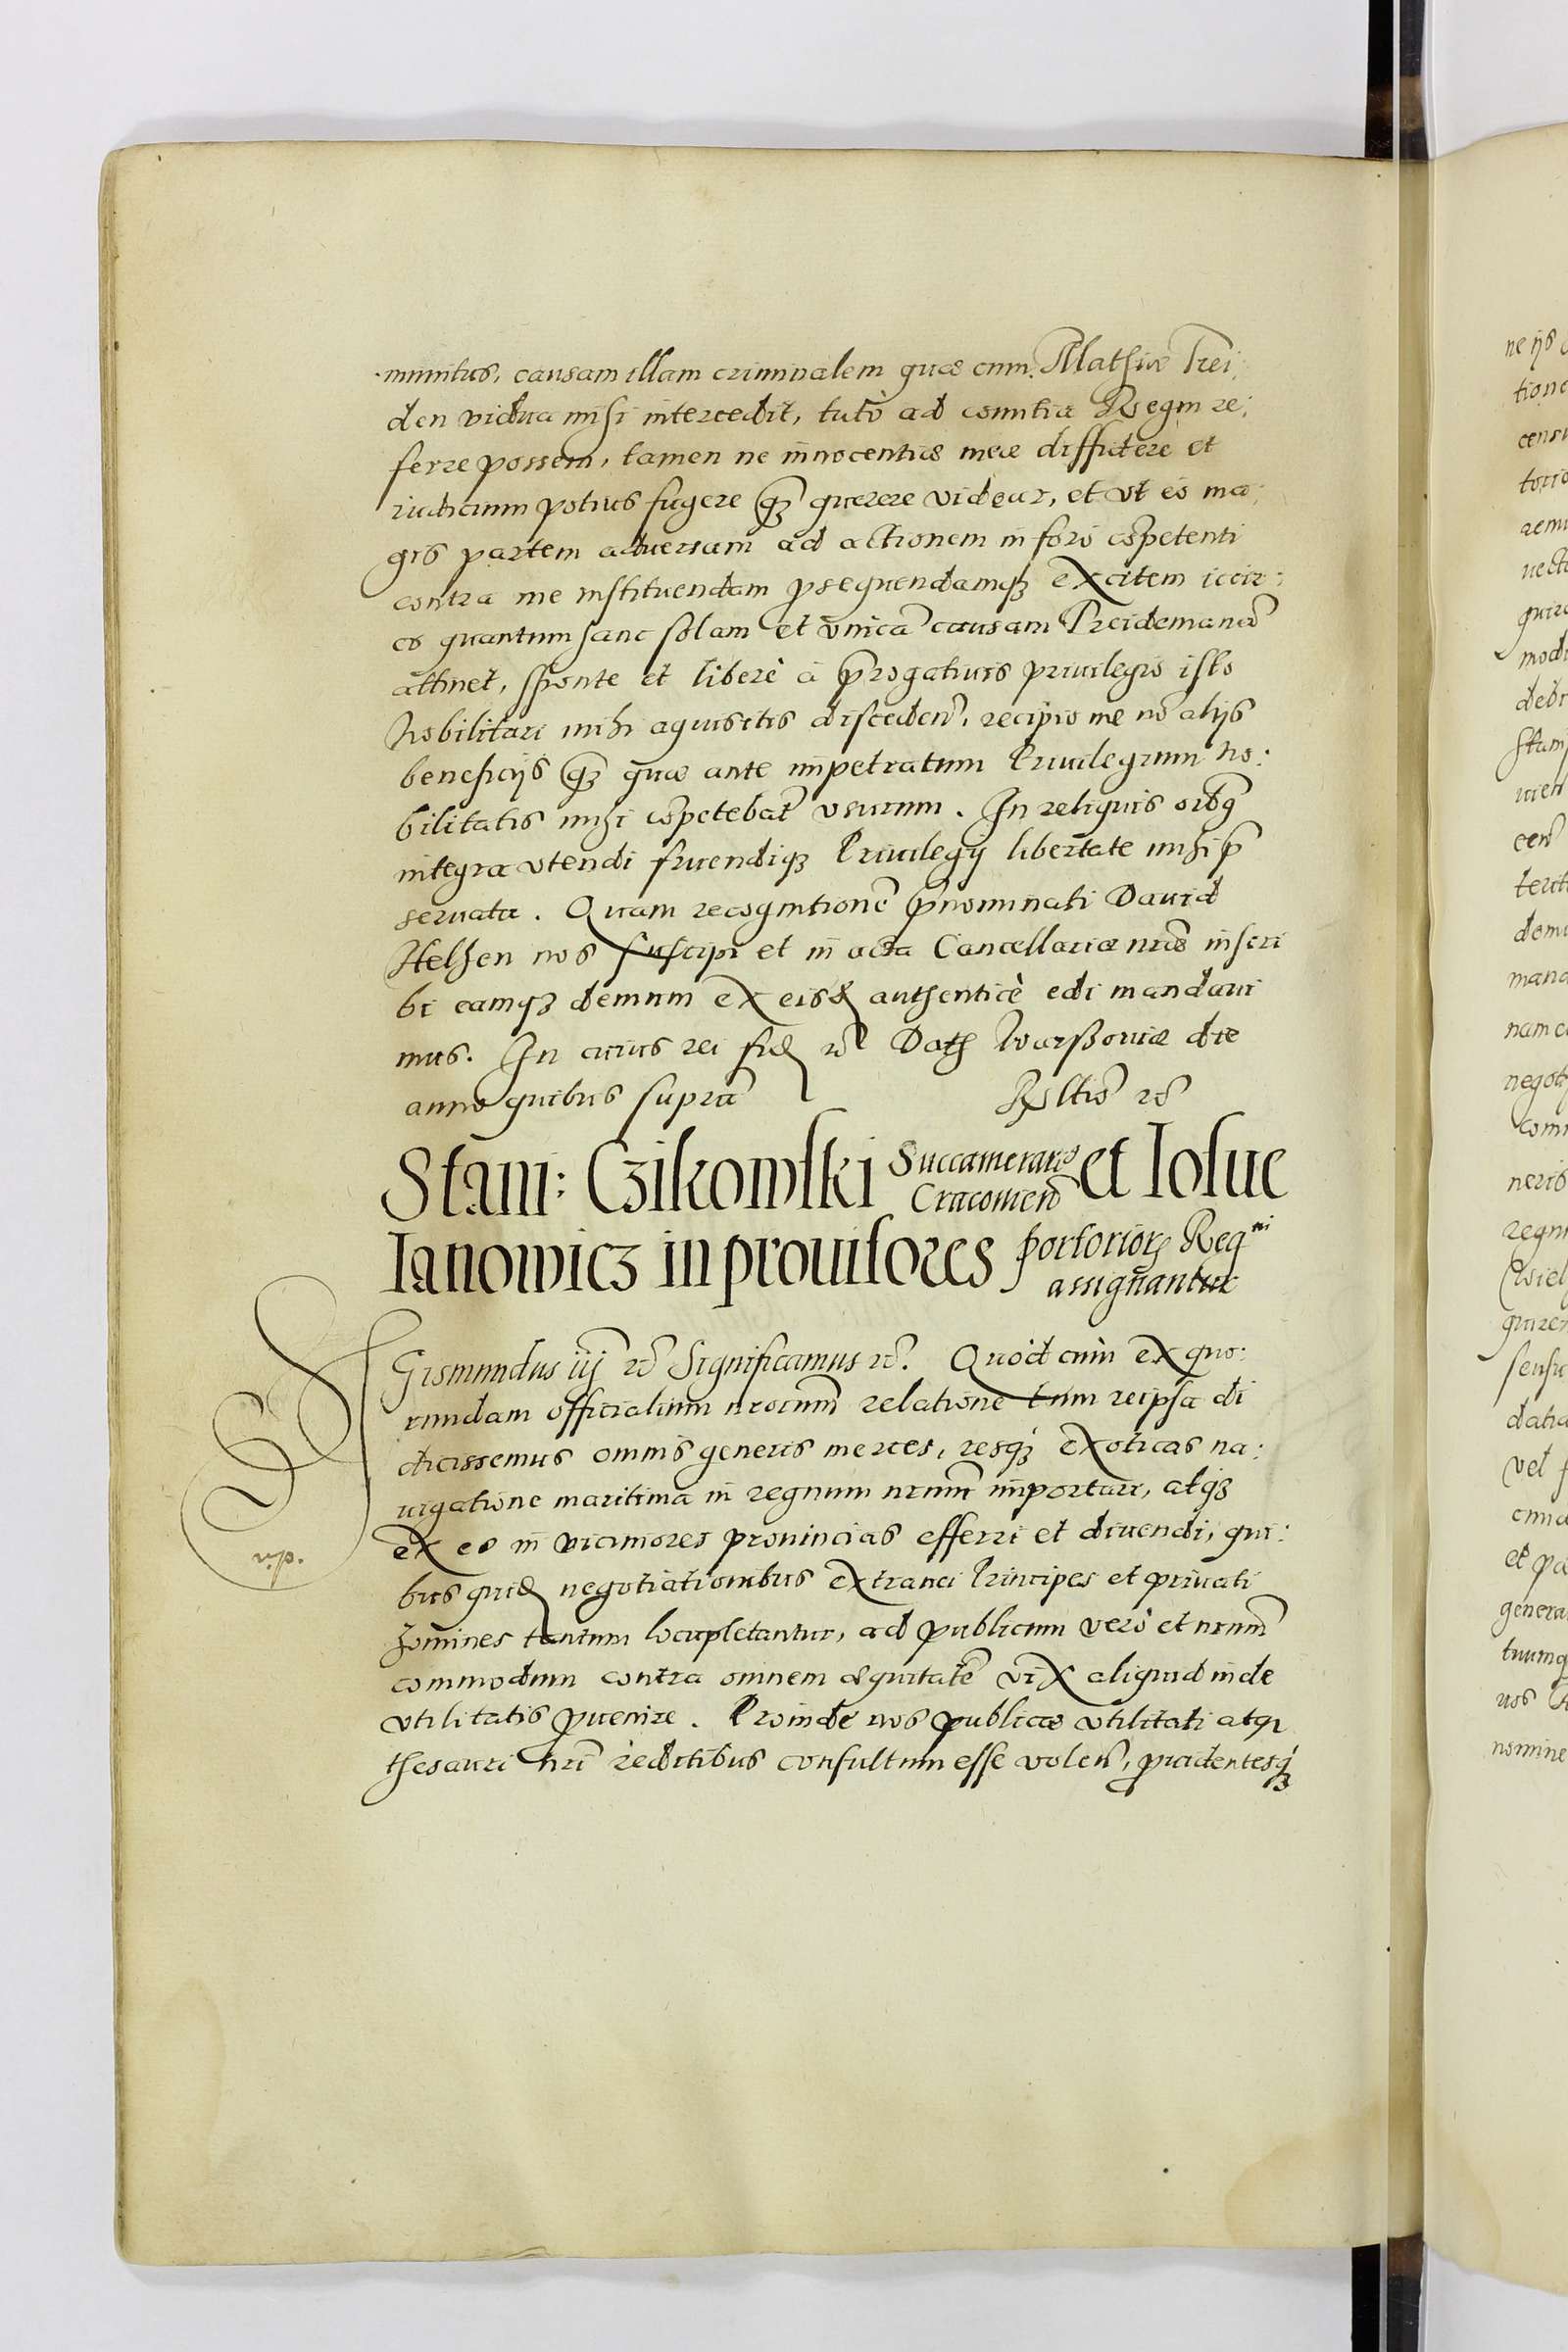 munitus, causam illam criminalem quæ cum Mathiæ Trei:
den vidua mihi intercedit, tutò ad comitia Regni re:
ferre possem, tamen ne innocentiæ meæ diffidere et
iudicium potius fugere q̃ȝ quærere videar, et vt eò ma:
gis partem aduersam ad actionem in foro cõpetenti
contra me instituendam ꝓsequendamqȝ excitem iccir:
co quantum hanc solam et vnicã causam Treidemanã
attinet, sponte et liberè à p̃rogatiuis priuilegio isto
Nobilitari mihi aquisitis disceden̄, recipio me nõ alijs
beneficijs q̃ȝ quæ ante impetratum Priuilegium No:
bilitatis mihi cõpetebat̃ vsurum. In reliquis oĩbq̃
integra vtendi fruendiqȝ Priuilegij libertate mihi p̃
seruata. Quam recognitionẽ p̃nominati Dauid
Helsen nos suscipi et in acta Cancellariæ nr̃æ inscri
bi eamqȝ demum ex eisd̃ authenticè edi mandaui
mus. In cuius rei fid̃ rc̃ Datꝝ Warssouiæ die
anno quibus suprã Rltio rc̃
Stani: Czikowski Succamerariꝰ Cracouien̄ et Iosue
Ianowicz in prouisores portoriorꝝ Reg^ni assignantur
Gismundus iij rc̃ Significamus rc̃. Quòd cùm ex quo:
rundam officialium nrorum̃ relatione tum reipsa di
dicissemus omnis generis merces, resqȝ exoticas na:
uigatione maritima in regnum nrum̃ importari, atqȝ
ex eo in viciniores prouincias efferri et diuendi, qui:
bus quid̃ negotiationibus extranei Principes et priuati
homines tantum locupletantur, ad publicum verò et nrum̃
commodum contra omnem æquitatẽ vix aliquid inde
vtilitatis ꝓuenire. Proinde nos publicæ vtilitati atqȝ
thesauri nrĩ reditibus consultum esse volen̄, ꝓuidentesqȝ